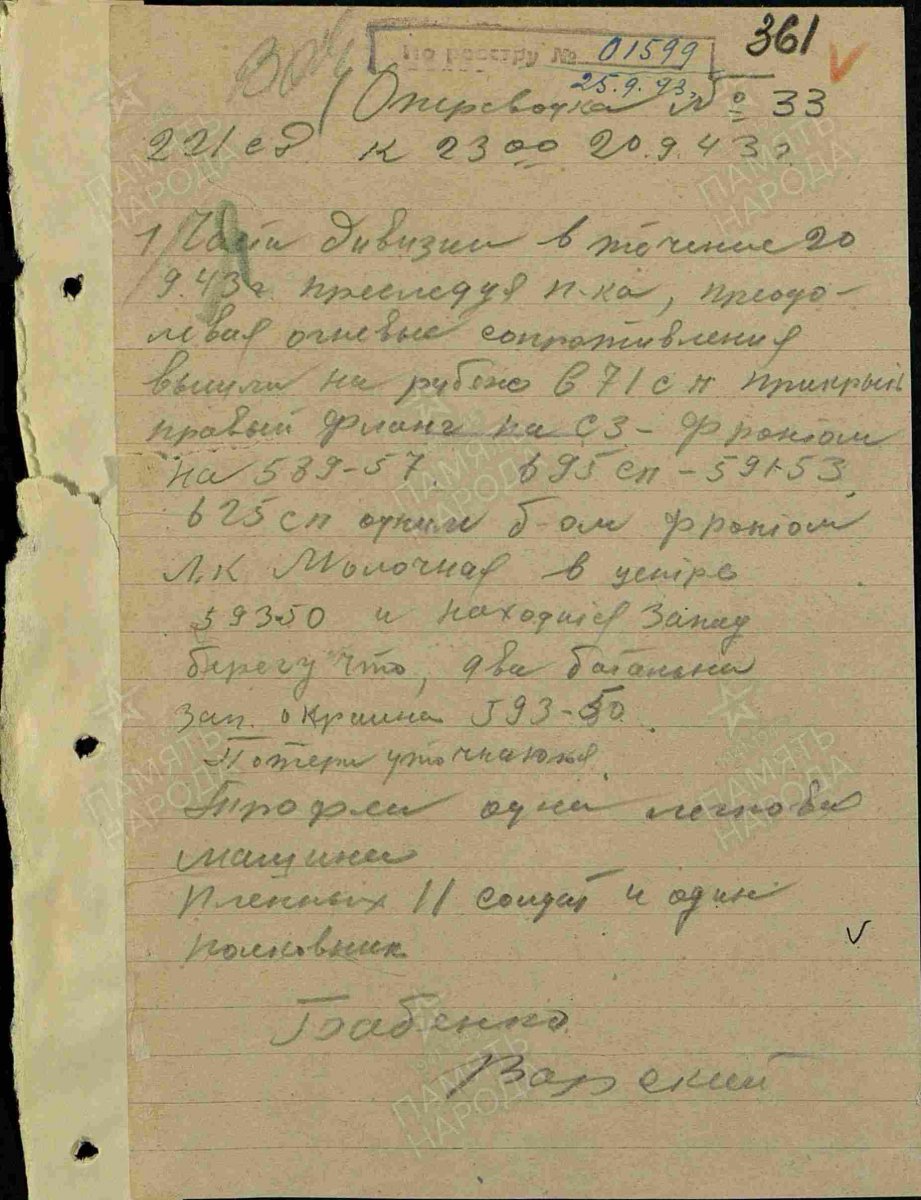 361
По реестру № 01599
25.9.43 г.
Оперсводка № 33
221 сд к 23 00 20.9.43 г
1/ Части дивизии в течение 20
9.43 г. преследуя п-ка, преодо-
левая огневые сопротивления
вышли на рубеж 671 сп прикрыв
правый фланг на СЗ - фронтом
на 589-57. 695 сп - 591-53
625 сп одним б-ом фронтом
Молочная в центре
59350 и находится запад
берегу что, два батальона
зап. окраина 593-50.
Потери уточняются
Трофеи одна легковая
машина
Пленных 11 солдат и один
полковник
Бабенко
Варский
ПАМЯТЬ НАРОДА